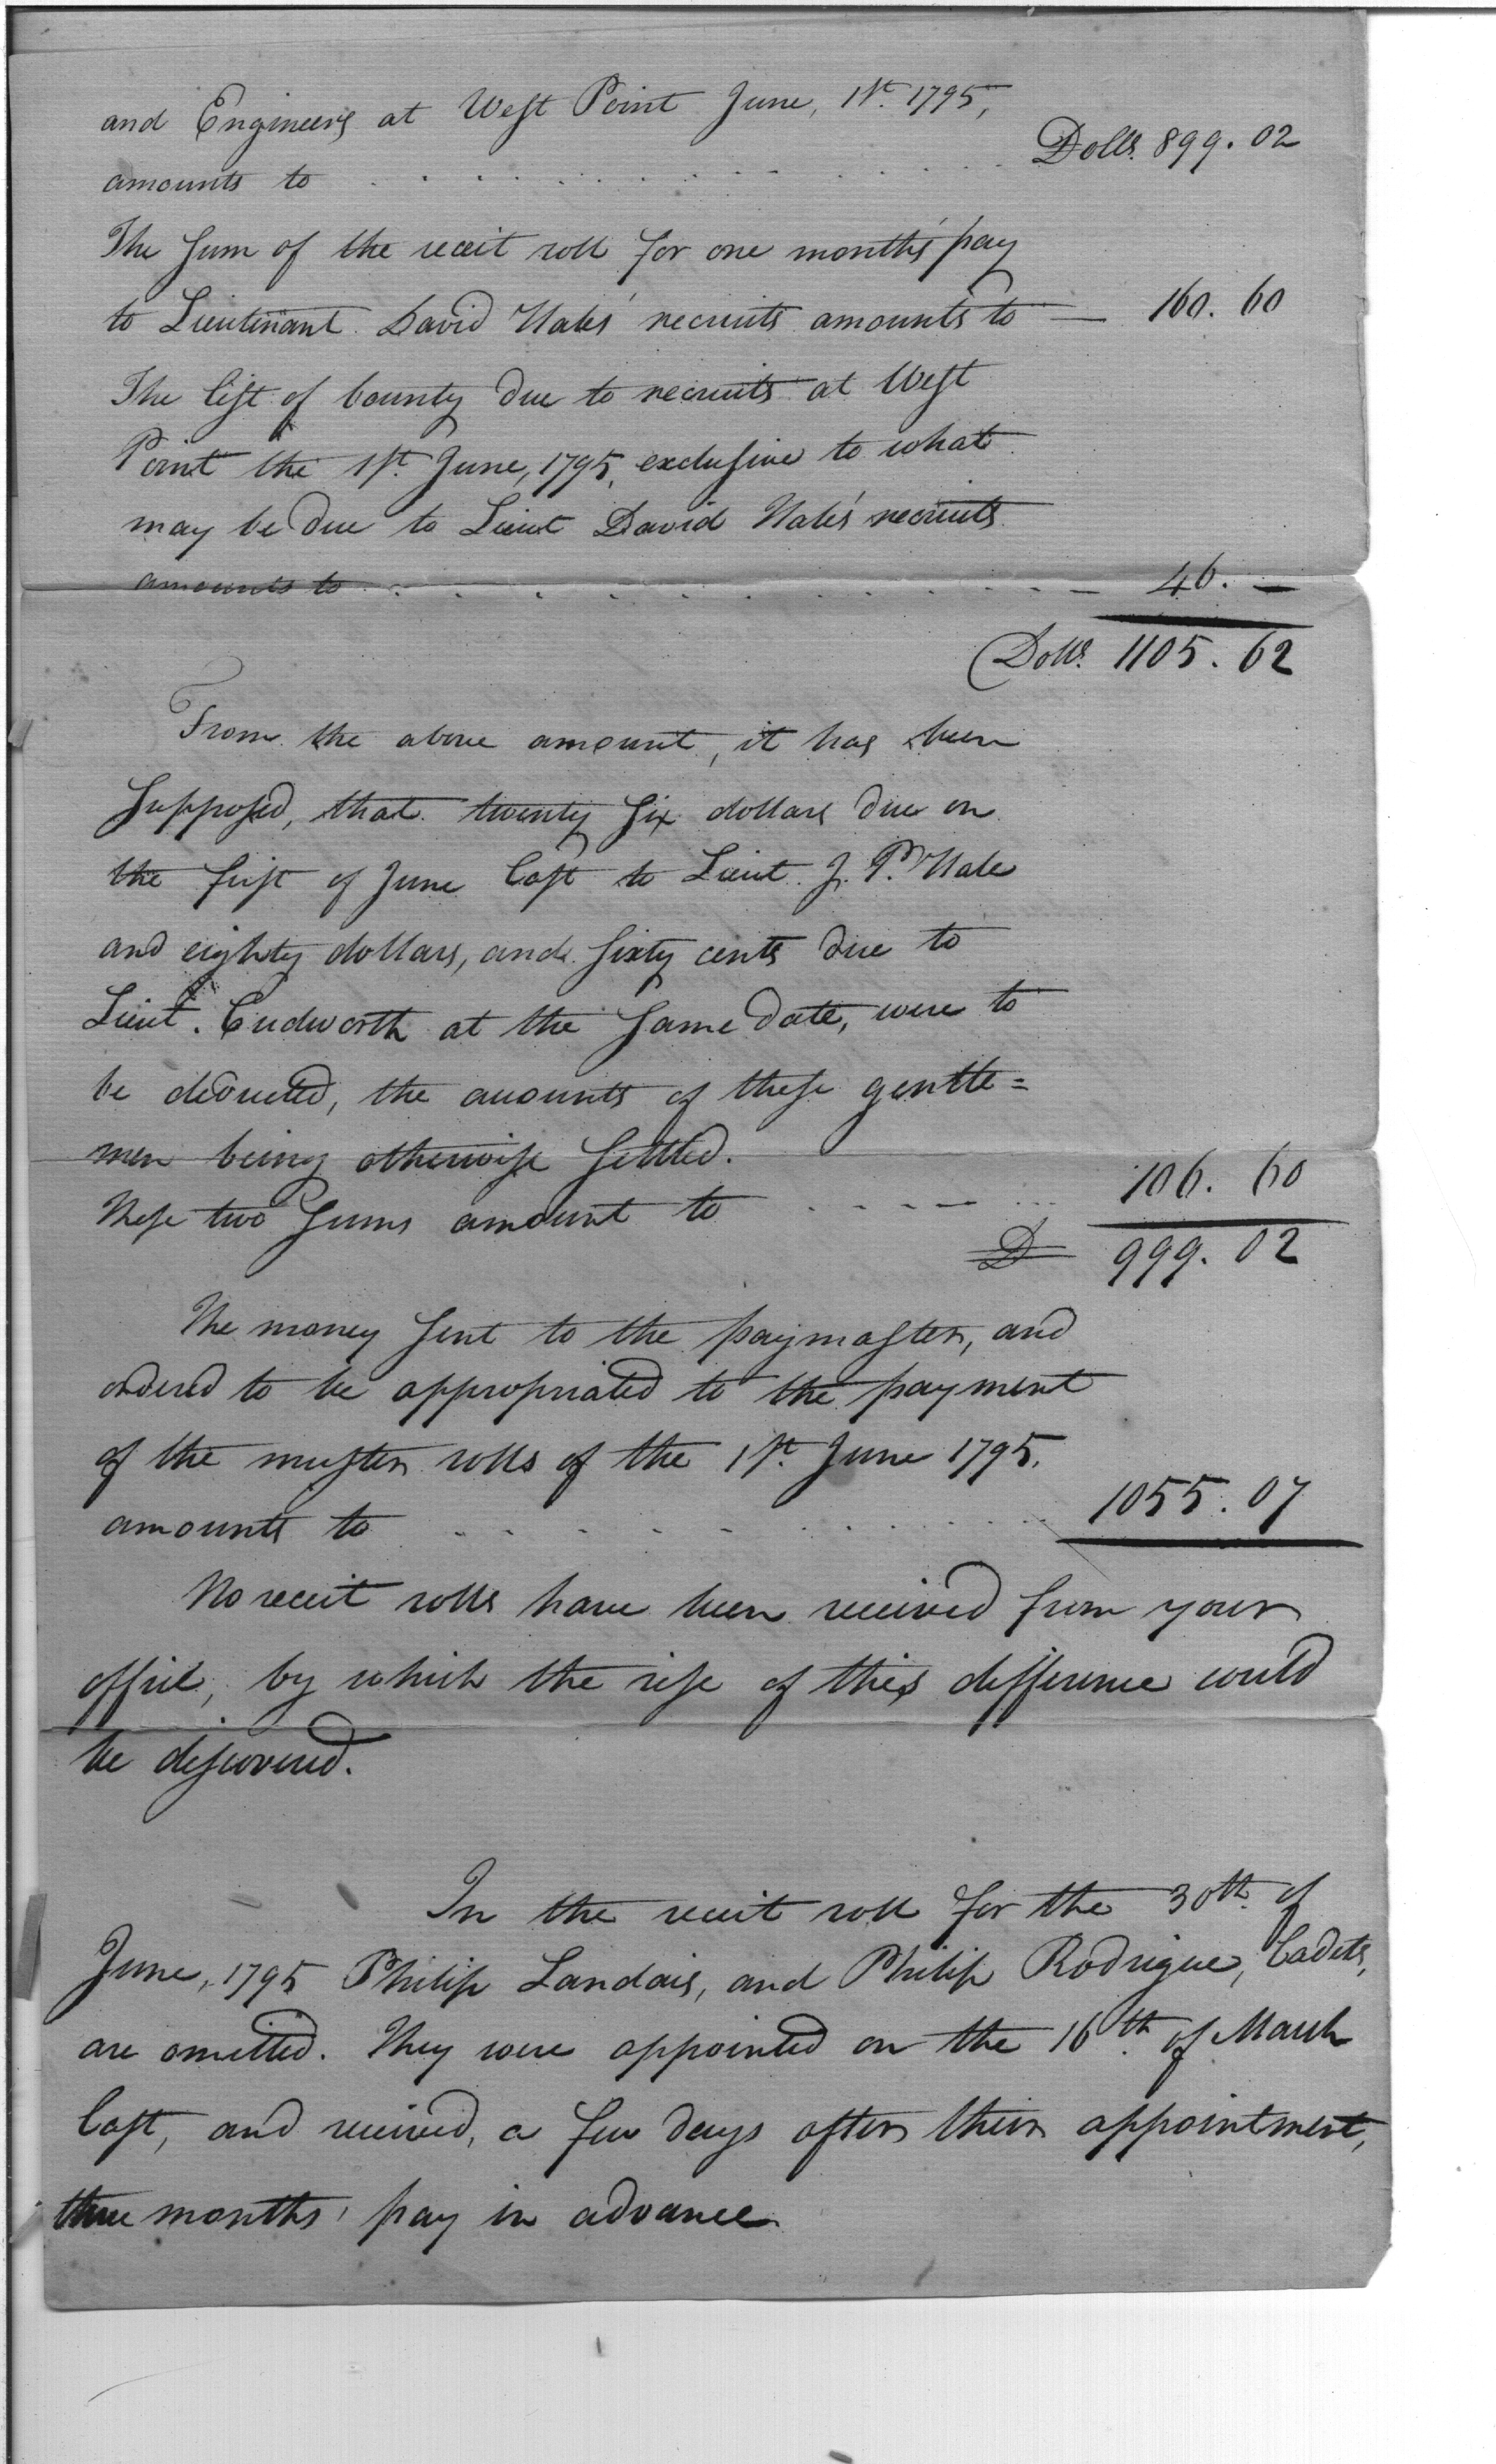 and Engineers at West Point June, 1st. 1795,
amounts to . . . . . . . . . . . . Dolls. 899. 02
The sum of the receit roll for one months' pay
to Lieutenant David Hales' recruits amounts to — 160. 60
The list of bounty due to recruits at West
Point the 1st. June, 1795, exclusive to what
may be due to Lieut David Hale's recruits
amounts to . . . . . . . . . . . . — 46. —
Dolls. 1105. 62
From the above amount, it has been
supposed, that twenty six dollars due on
the first of June last to Lieut. J. P. Hale
and eighty dollars, and sixty cents due to
Lieut. Cudworth at the same date, were to
be deducted, the accounts of these gentle=
men being otherwise settled.
These two sums amount to . . . . . . 106. 60
D 999. 02
The money sent to the paymaster, and
ordered to be appropriated to the payment
of the muster rolls of the 1st. June 1795.
amounts to . . . . . . . . . . . 1055. 07
No receit rolls have been received from your
office, by which the rise of this difference could
be discovered.
In the receit roll for the 30th. of
June, 1795 Philip Landais, and Philip Rodrigue, Cadets,
are omitted. They were appointed on the 16th. of March
last, and received, a few days after their appointment,
three months' pay in advance